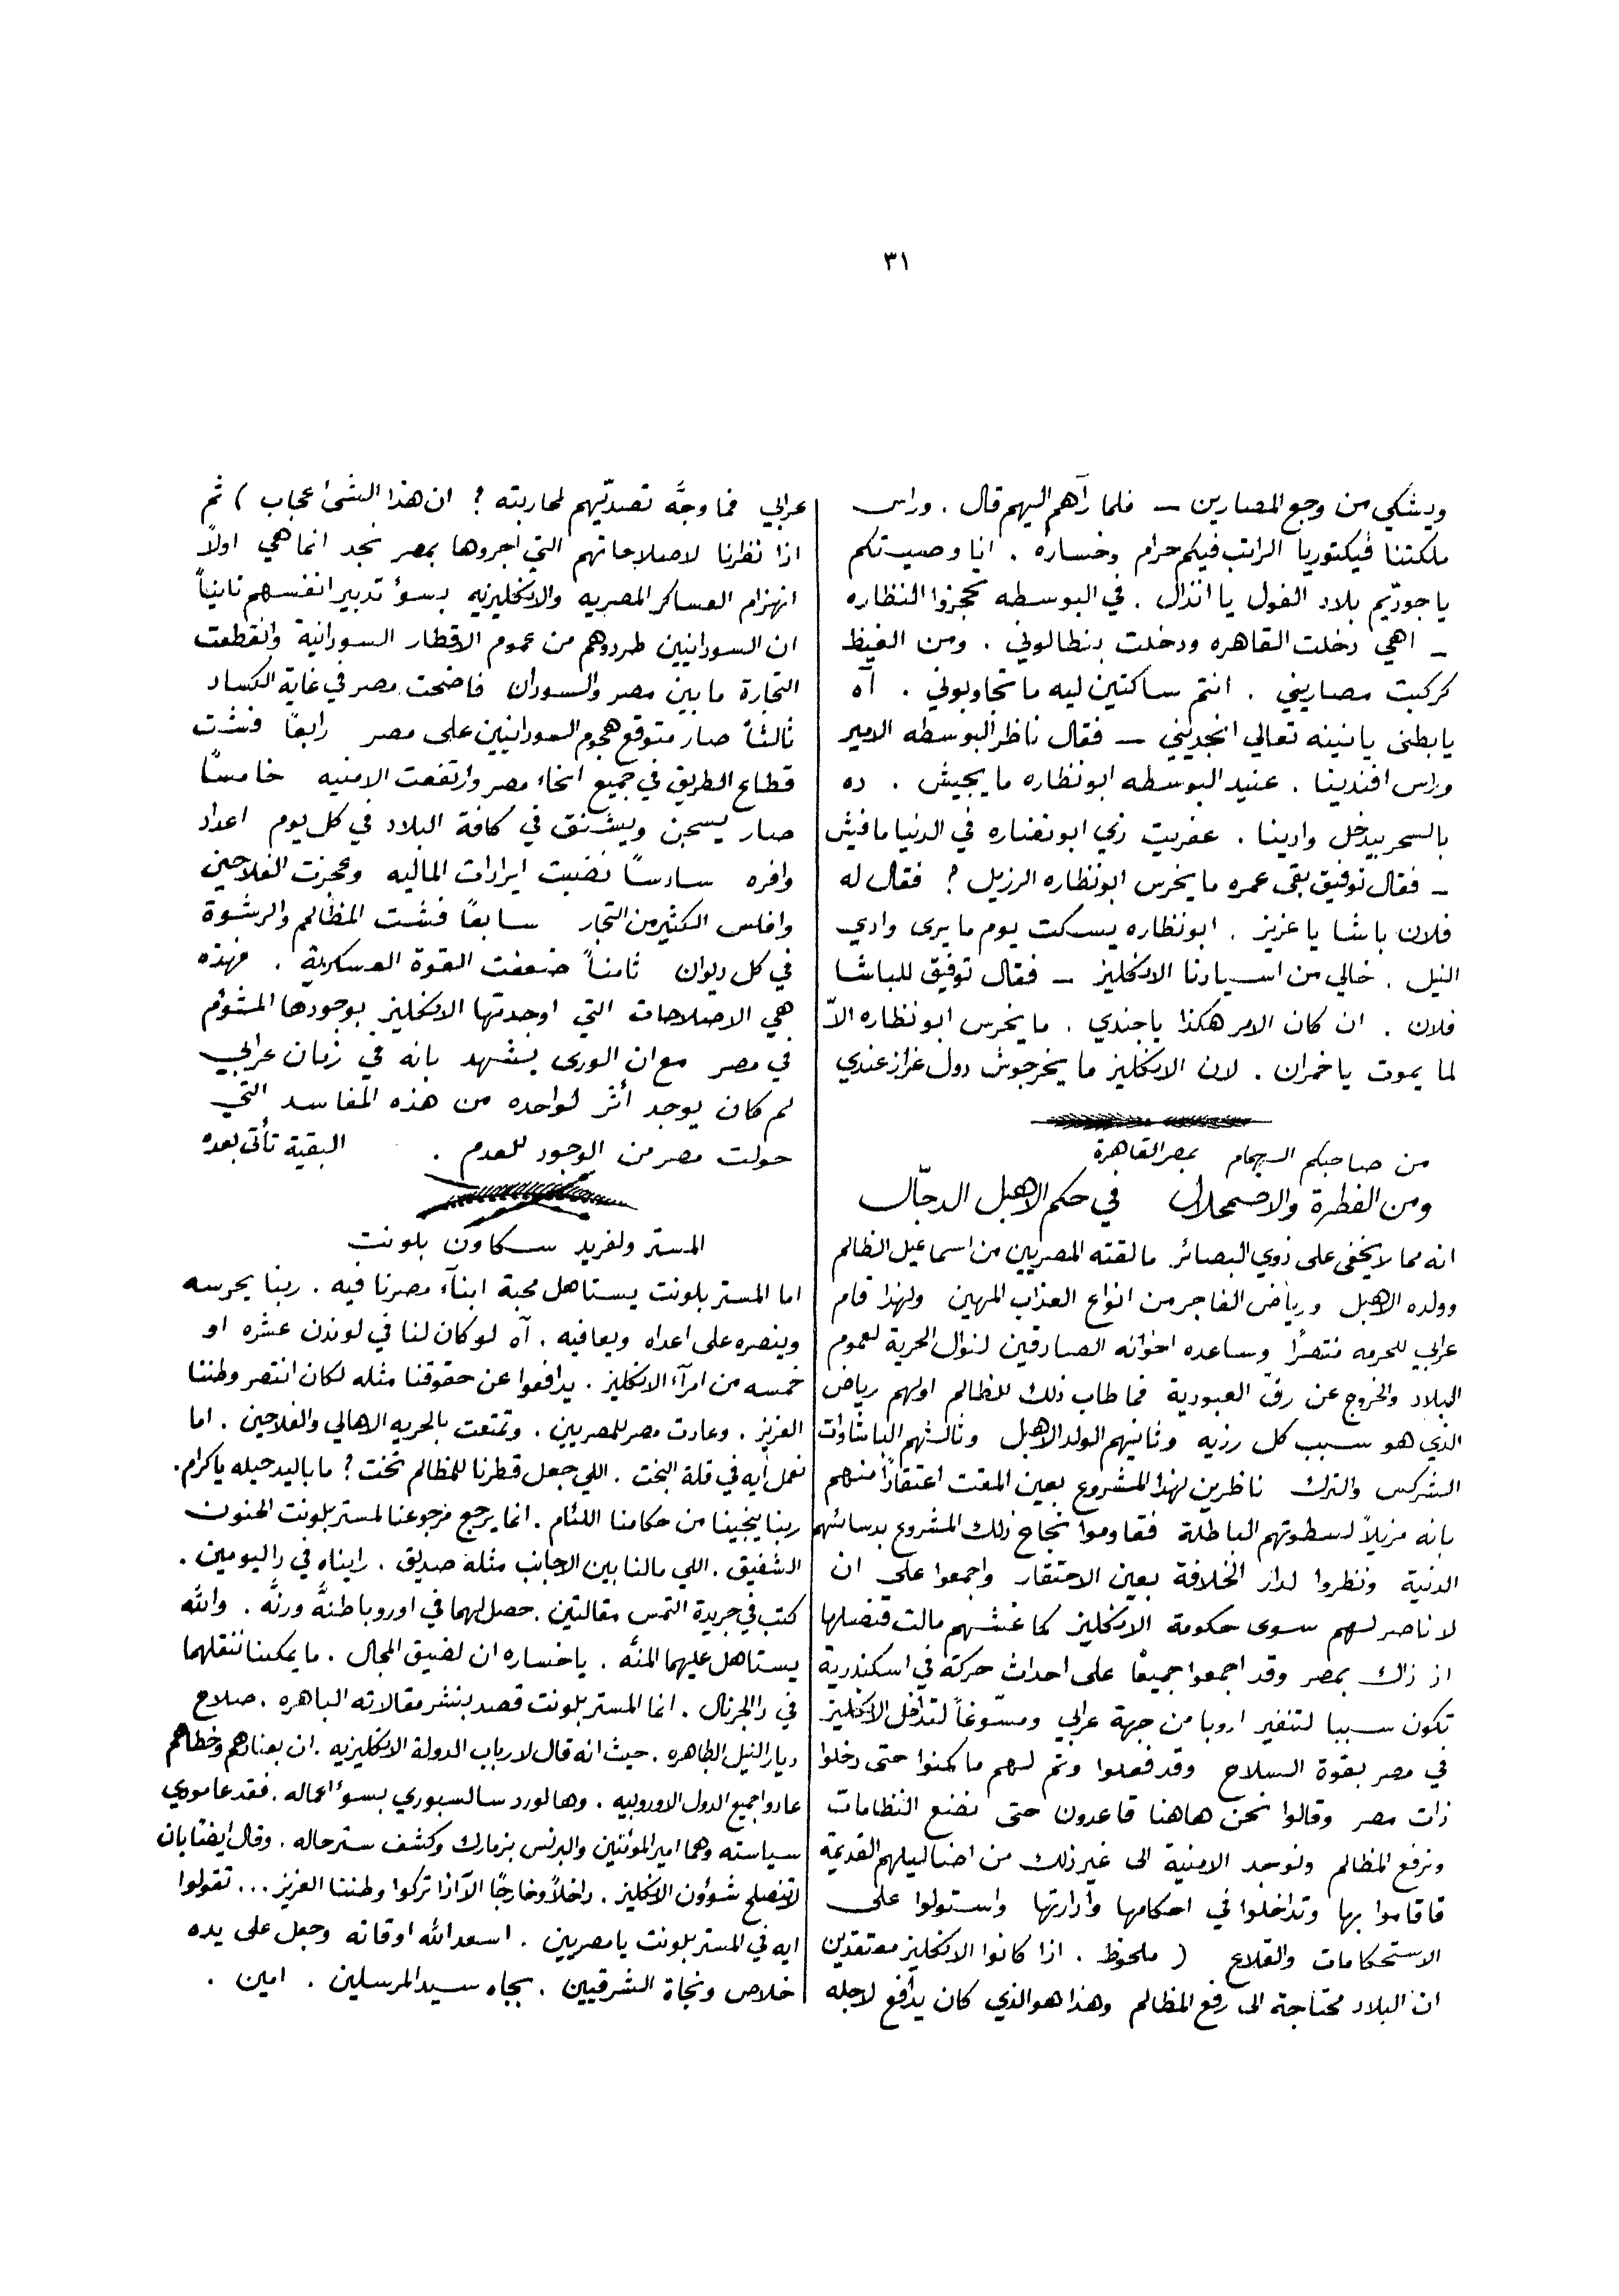 ٣١
ويشكي من وجع المصارين ــ فلما رآهم اليهم قال . وراس
ملكتنا ڤيكتوريا الراتب فيكم حرام وخساره . انا وصيتكم
يا جوديّم بلاد الفول يا انذال . في البوسطه تحجزوا النظاره
ــ اهي دخلت القاهره ودخلت بنطالوني . ومن الغيظ
كركبت مصاريني . انتم ساكتين ليه ما تجاوبوني . آه
يا بطنى يا نينه تعالي انجديني ــ فقال ناظر البوسطه الامير
وراس افندينا . عنيد البوسطه ابو نظاره ما يجيش . ده
بالسحر بيدخل وادينا . عفريت زي ابو نضاره في الدنيا مافيش
ــ فقال توفيق بقى عمره ما يخرس ابو نظاره الرزيل ؟ فقال له
فلان باشا يا عزيز . ابو نظاره يسكت يوم ما يرى وادي
النيل . خالي من اسيادنا الانكليز ــ فقال توفيق للباشا
فلان . ان كان الامر هكذا يا جندي . ما يخرس ابو نظاره الاّ
لما يموت يا خمران . لان الانكليز ما يخرجوش دول عزاز عندي
من صاحبكم السهام بمصر القاهرة
ومن الفطرة والاضمحلال في حكم الاهبل الدجّال
انه مما لا يخفى على ذوي البصائر ما لقته المصريين من اسماعيل الظالم
وولده الاهبل ورياض الفاجر من انواع العذاب المهين ولهذا قام
عرابي للحرمه منتصراً وساعده اخوانه الصادقين لنوال الحرية لعموم
البلاد والخروج عن رقّ العبودية فما طاب ذلك للظالم اولهم رياض
الذي هو سبب كل رزيه وثانيهم الولد الاهبل وثالثهم الباشاوات
الشركس والترك ناظرين لهذا المشروع بعين المقت اعتقاداً منهم
بانه مزيلاً لسطوتهم الباطلة فقاوموا نجاح ذلك المشروع بدسائسهم
الدنية ونظروا لدار الخلافة بعين الاحتقار واجمعوا على ان
لا ناصر لهم سوى حكومة الانكليز كما غشهم مالت قنصلها
اذ ذاك بمصر وقد اجمعوا جميعًا على احداث حركة في اسكندرية
تكون سببا لتنفير اروبا من جهة عرابي ومسوّغاً لتداخل الانكليز
في مصر بقوة السلاح وقد فعلوا وتم لهم ما كمنوا حتى دخلوا
ذات مصر وقالوا نحن هاهنا قاعدون حتى نضع النظامات
ونرفع المظالم ونوجد الامنية الى غير ذلك من اضاليلهم القديمة
فاقاموا بها وتداخلوا في احكامها وادارتها واستولوا على
الاستحكامات والقلاع ( ملحوظ . اذا كانوا الانكليز معتقدين
ان البلاد محتاجة الى رفع المظالم وهذا هو الذي كان يدافع لاجله
عرابي فما وجهُّ تصديّهم لمحاربته ؟ ان هذا الشئ عجاب ) ثم
اذا نظرنا لاصلاحاتهم التي اجروها بمصر نجد انما هي اولاً
انهزام العساكر المصريه والانكليزيه بسؤ تدبير انفسهم ثانياً
ان السودانيين طردوهم من عموم الاقطار السودانية وانقطعت
التجارة ما بين مصر والسودان فاضحت مصر في غاية الكساد
ثالثاً صار متوقع هجوم السودانيين على مصر رابعًا فشت
قطاع الطريق في جميع انحاء مصر وارتفعت الامنيه خامسًا
صار يسجن ويشنق في كافة البلاد في كل يوم اعداد
وافره سادسًا نضبت ايرادات الماليه وعجزت الفلاحين
وافلس الكثير من التجار سابعًا فشت المظالم والرشوة
في كل ديوان ثامناً ضعفت القوة العسكرية . فهذه
هي الاصلاحات التي اوجدتها الانكليز بوجودها المشئوم
في مصر مع ان الورى يشهد بانه في زمان عرابي
لم كان يوجد أثر لواحده من هذه المفاسد التي
حولت مصر من الوجود للعدم . البقية تأتى بعده
المستر ولفريد سكاون بلونت
اما المستر بلونت يستاهل محبة ابنآء مصرنا فيه . ربنا يحرسه
وينصره على اعداه ويعافيه . آه لو كان لنا في لوندن عشره او
خمسه من امرآء الانكليز . يدافعوا عن حقوقنا مثله لكان انتصر وطننا
العزيز . وعادت مصر للمصريين . وتمتعت بالحريه الاهالي والفلاحين . اما
نعمل أيه في قلة البخت . اللي جعل قطرنا للمظالم تخت ؟ ما باليد حيله يا كرام .
ربنا ينجينا من حكامنا اللئام . انما يرجع مرجوعنا لمستر بلونت الحنون
الشفيق . اللي مالنا بين الاجانب مثله صديق . رايناه في دا اليومين .
كتب في جريدة التمس مقالتين . حصل لهما في اوروبا طنهُّ ورنهُّ . والله
يستاهل عليهما المنَّه . يا خساره ان لضيق المجال . ما يمكننا ننقلهما
في دا الجرنال . انما المستر بلونت قصد بنشر مقالاته الباهره . صلاح
ديار النيل الطاهره . حيث انه قال لارباب الدولة الانكليزيه . ان بعنادهم وخطاهم
عادوا جميع الدول الاوروبيه . وها لورد سالسبوري بسؤ اعماله . فقد عامودي
سياسته وهما امير المؤمنين والبرنس بزمارك وكشف ستر حاله . وقال ايضا بان
لا تنصلح شوؤون الانكليز . داخلاً وخارجًا الاّ اذا تركوا وطننا العزيز ... تقولوا
ايه في المستر بلونت يا مصريين . اسعد الله اوقاته وجعل على يده
خلاص ونجاة الشرقيين . بجاه سيد المرسلين . امين .